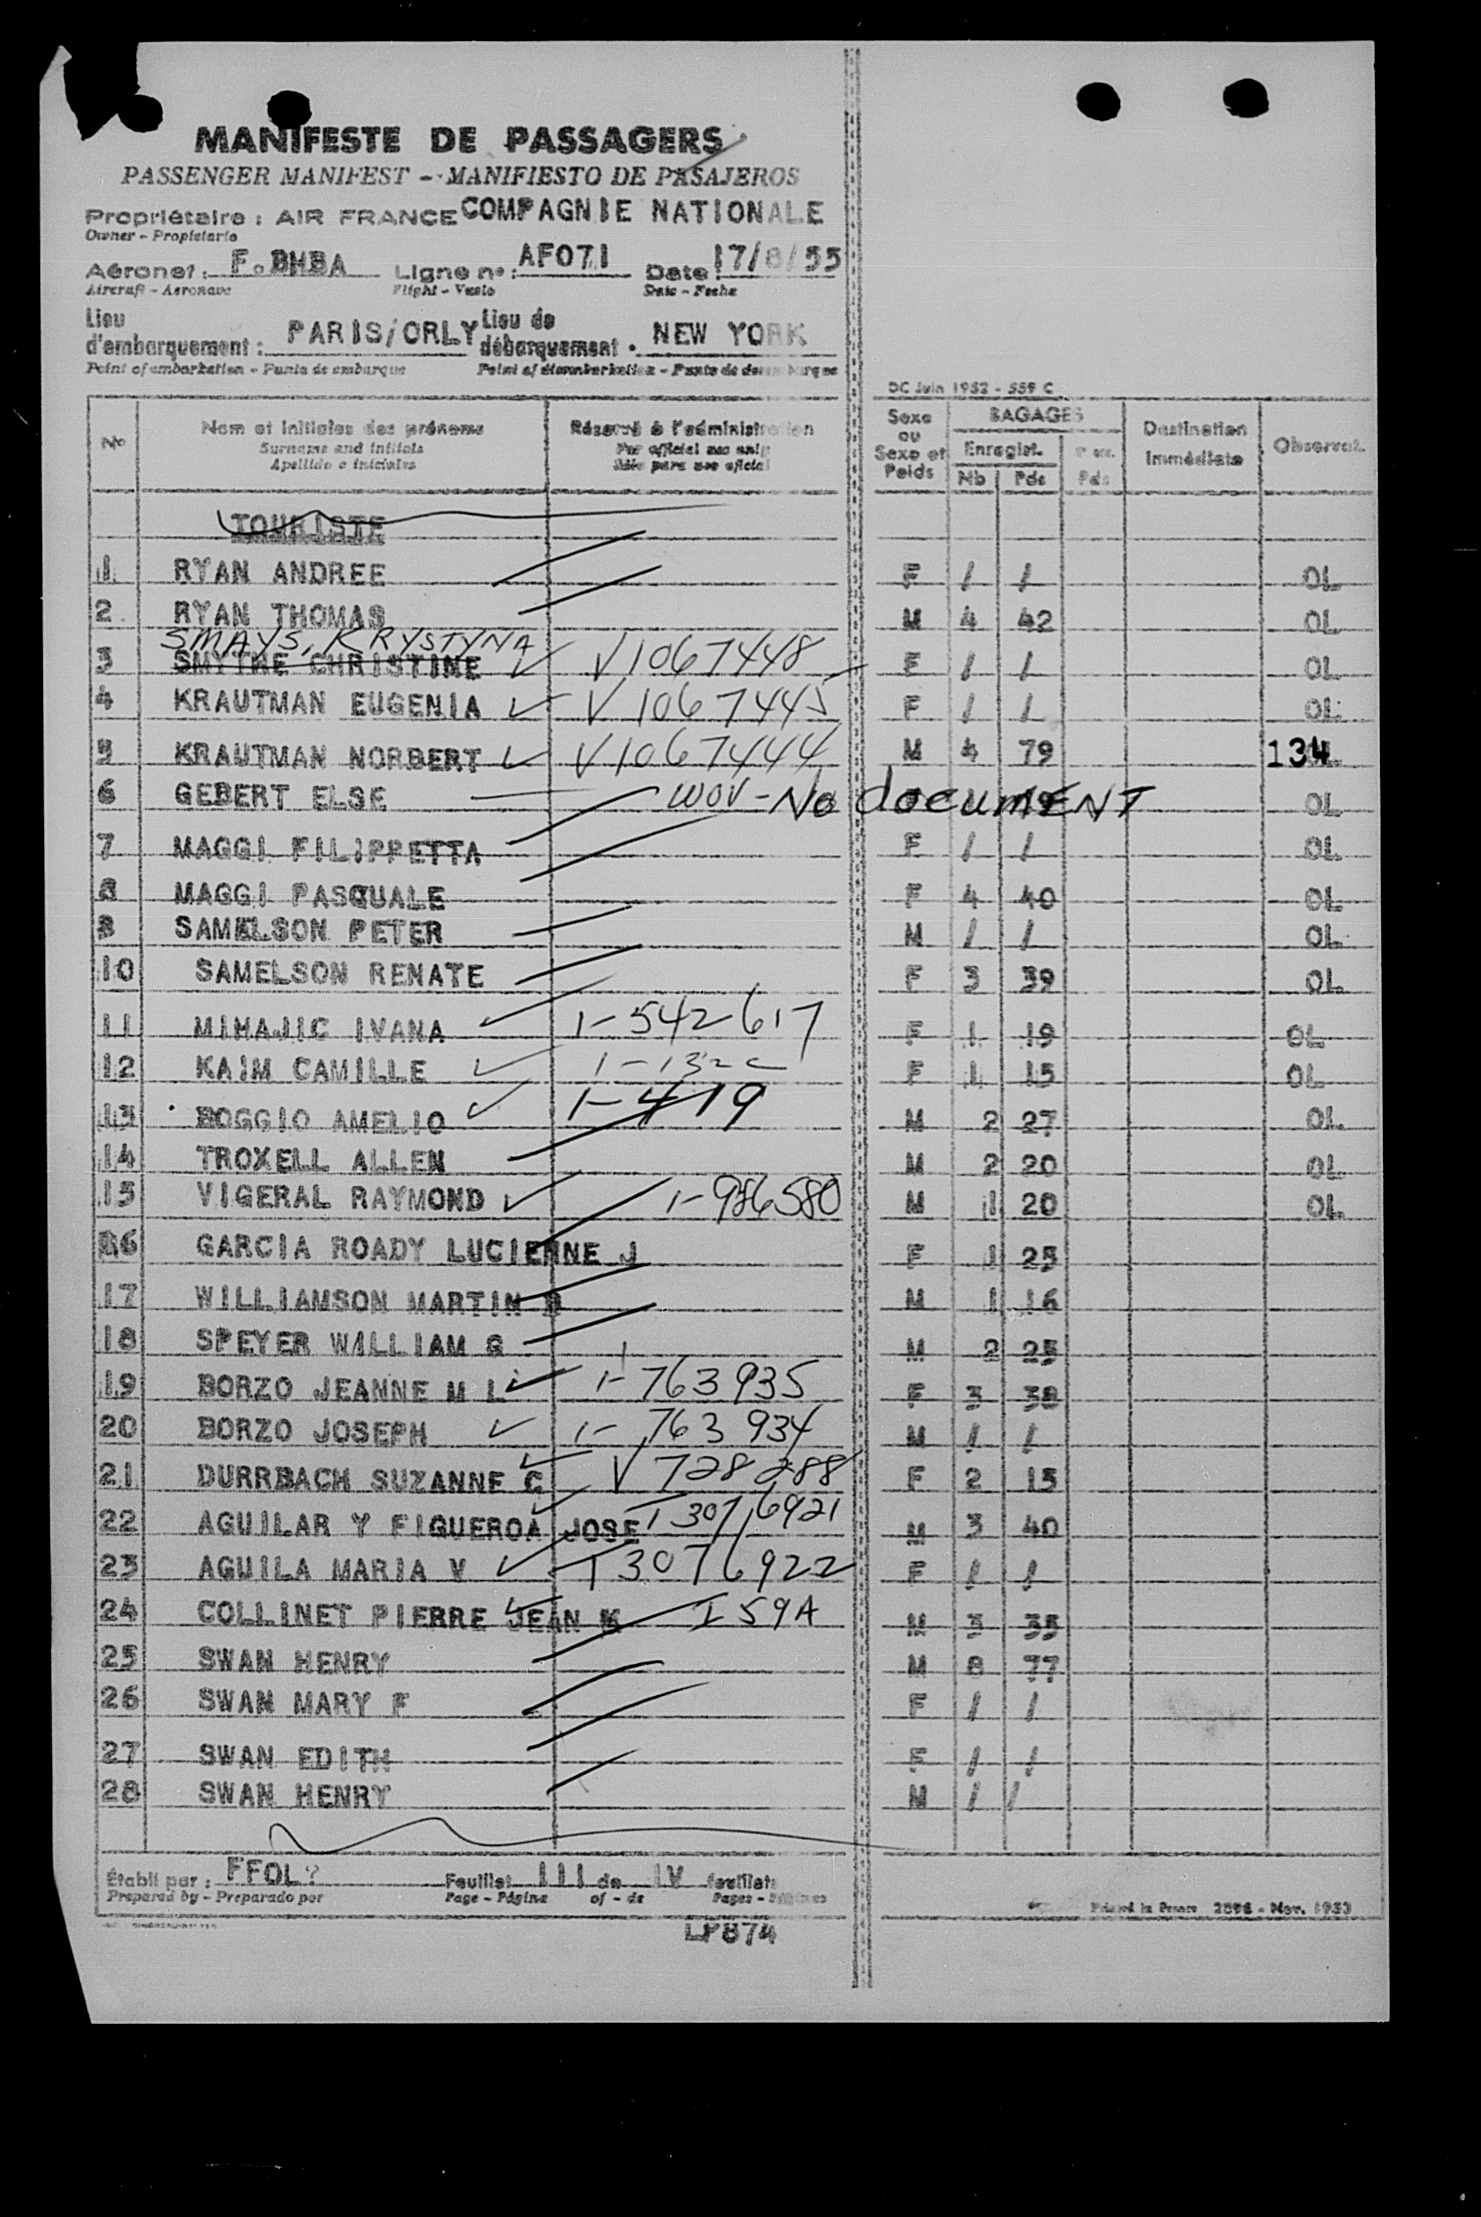 MANIFESTE DE PASSAGERS
PASSENGER MANIFEST - MANIFIESTO DE PASAJEROS
Propriétaire : AIR FRANCE COMPAGNIE NATIONALE
Owner - Propietario
Aéronef : F.BHBA Ligne n° : AF071 Date 17/8/55
Aircraft - Aeronave Flight - Vuelo Date - Fecha
Lieu d'embarquement : PARIS/ORLY Lieu de débarquement : NEW YORK
Point of embarkation - Punto de embarque Point of disembarkation - Punto de desembarque
DC Juin 1952 - 559 C
N° Nom et initiales des prénoms Réservé à l'administration Sexe ou Sexe et Poids BAGAGES Destination immédiate Observat.
Surname and initials For official use only Enregist.
Apellido e iniciales Sólo para uso oficial Nb Pds Pds
TOURISTE
1 RYAN ANDREE F / / OL
2 RYAN THOMAS M 4 42 OL
SMAYS, KRYSTYNA
3 SMYTHE CHRISTINE V1067448 F / / OL
4 KRAUTMAN EUGENIA V1067445 F / / OL
5 KRAUTMAN NORBERT V1067444 M 4 79 134
6 GEBERT ELSE WOV - No documENT OL
7 MAGGI FILIPPETTA F / / OL
8 MAGGI PASQUALE F 4 40 OL
SAMELSON PETER M / / OL
10 SAMELSON RENATE F 3 39 OL
11 MIHAJIC IVANA 1-542617 F 1 19 OL
12 KAIM CAMILLE F 1 15 OL
13 BOGGIO AMELIO 1-419 M 2 27 OL
14 TROXELL ALLEN M 2 20 OL
15 VIGERAL RAYMOND 1-986580 M 1 20 OL
16 GARCIA ROADY LUCIENNE J F 1 25
17 WILLIAMSON MARTIN B M 1 16
18 SPEYER WILLIAM G M 2 25
19 BORZO JEANNE M L 1-763935 F 3 38
20 BORZO JOSEPH 1-763934 M / /
21 DURRBACH SUZANNE C V 728288 F 2 15
22 AGUILAR Y FIGUEROA JOSE T3076921 M 3 40
23 AGUILA MARIA V T3076922 F / /
24 COLLINET PIERRE JEAN K I 59A M 3 35
25 SWAN HENRY M 8 77
26 SWAN MARY F F / /
27 SWAN EDITH F / /
28 SWAN HENRY M / /
Établi par : FFOL? Feuillet III de IV feuillets
Prepared by - Preparado por Page - Página of - de Pages - Páginas
Printed in France 2098 - Nov. 1953
LP874